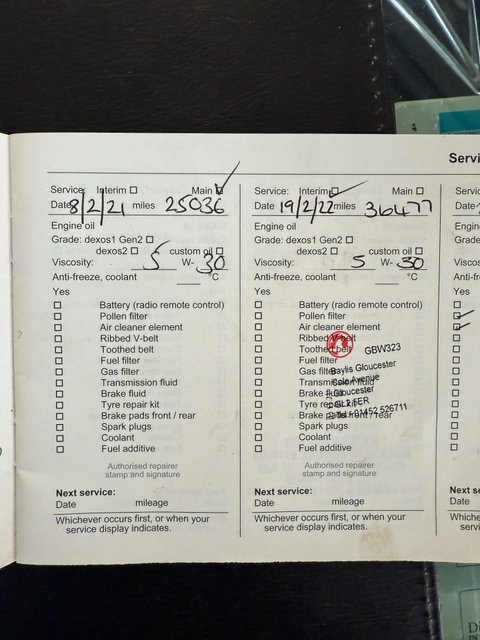 Servi
Service: Interim Main
Date 8/2/21 miles 25036
Engine oil
Grade: dexos1 Gen2
dexos2 custom oil
Viscosity: 5 W- 30
Anti-freeze, coolant °C
Yes
Battery (radio remote control)
Pollen filter
Air cleaner element
Ribbed V-belt
Toothed belt
Fuel filter
Gas filter
Transmission fluid
Brake fluid
Tyre repair kit
Brake pads front / rear
Spark plugs
Coolant
Fuel additive
Authorised repairer
stamp and signature
Next service:
Date mileage
Whichever occurs first, or when your
service display indicates.
Service: Interim Main
Date 19/2/22 miles 36477
Engine oil
Grade: dexos1 Gen2
dexos2 custom oil
Viscosity: 5 W- 30
Anti-freeze, coolant °C
Yes
Battery (radio remote control)
Pollen filter
Air cleaner element
Ribbed V-belt
Toothed belt
Fuel filter
Gas filter
Transmission fluid
Brake fluid
Tyre repair kit
Brake pads front / rear
Spark plugs
Coolant
Fuel additive
GBW323
Baylis Gloucester
Cole Avenue
Gloucester
GL2 5ER
Tel: 01452 526711
Authorised repairer
stamp and signature
Next service:
Date mileage
Whichever occurs first, or when your
service display indicates.
Servic
Date
Engin
Grade
Visco
Anti-f
Yes
Next s
Date
Which
se